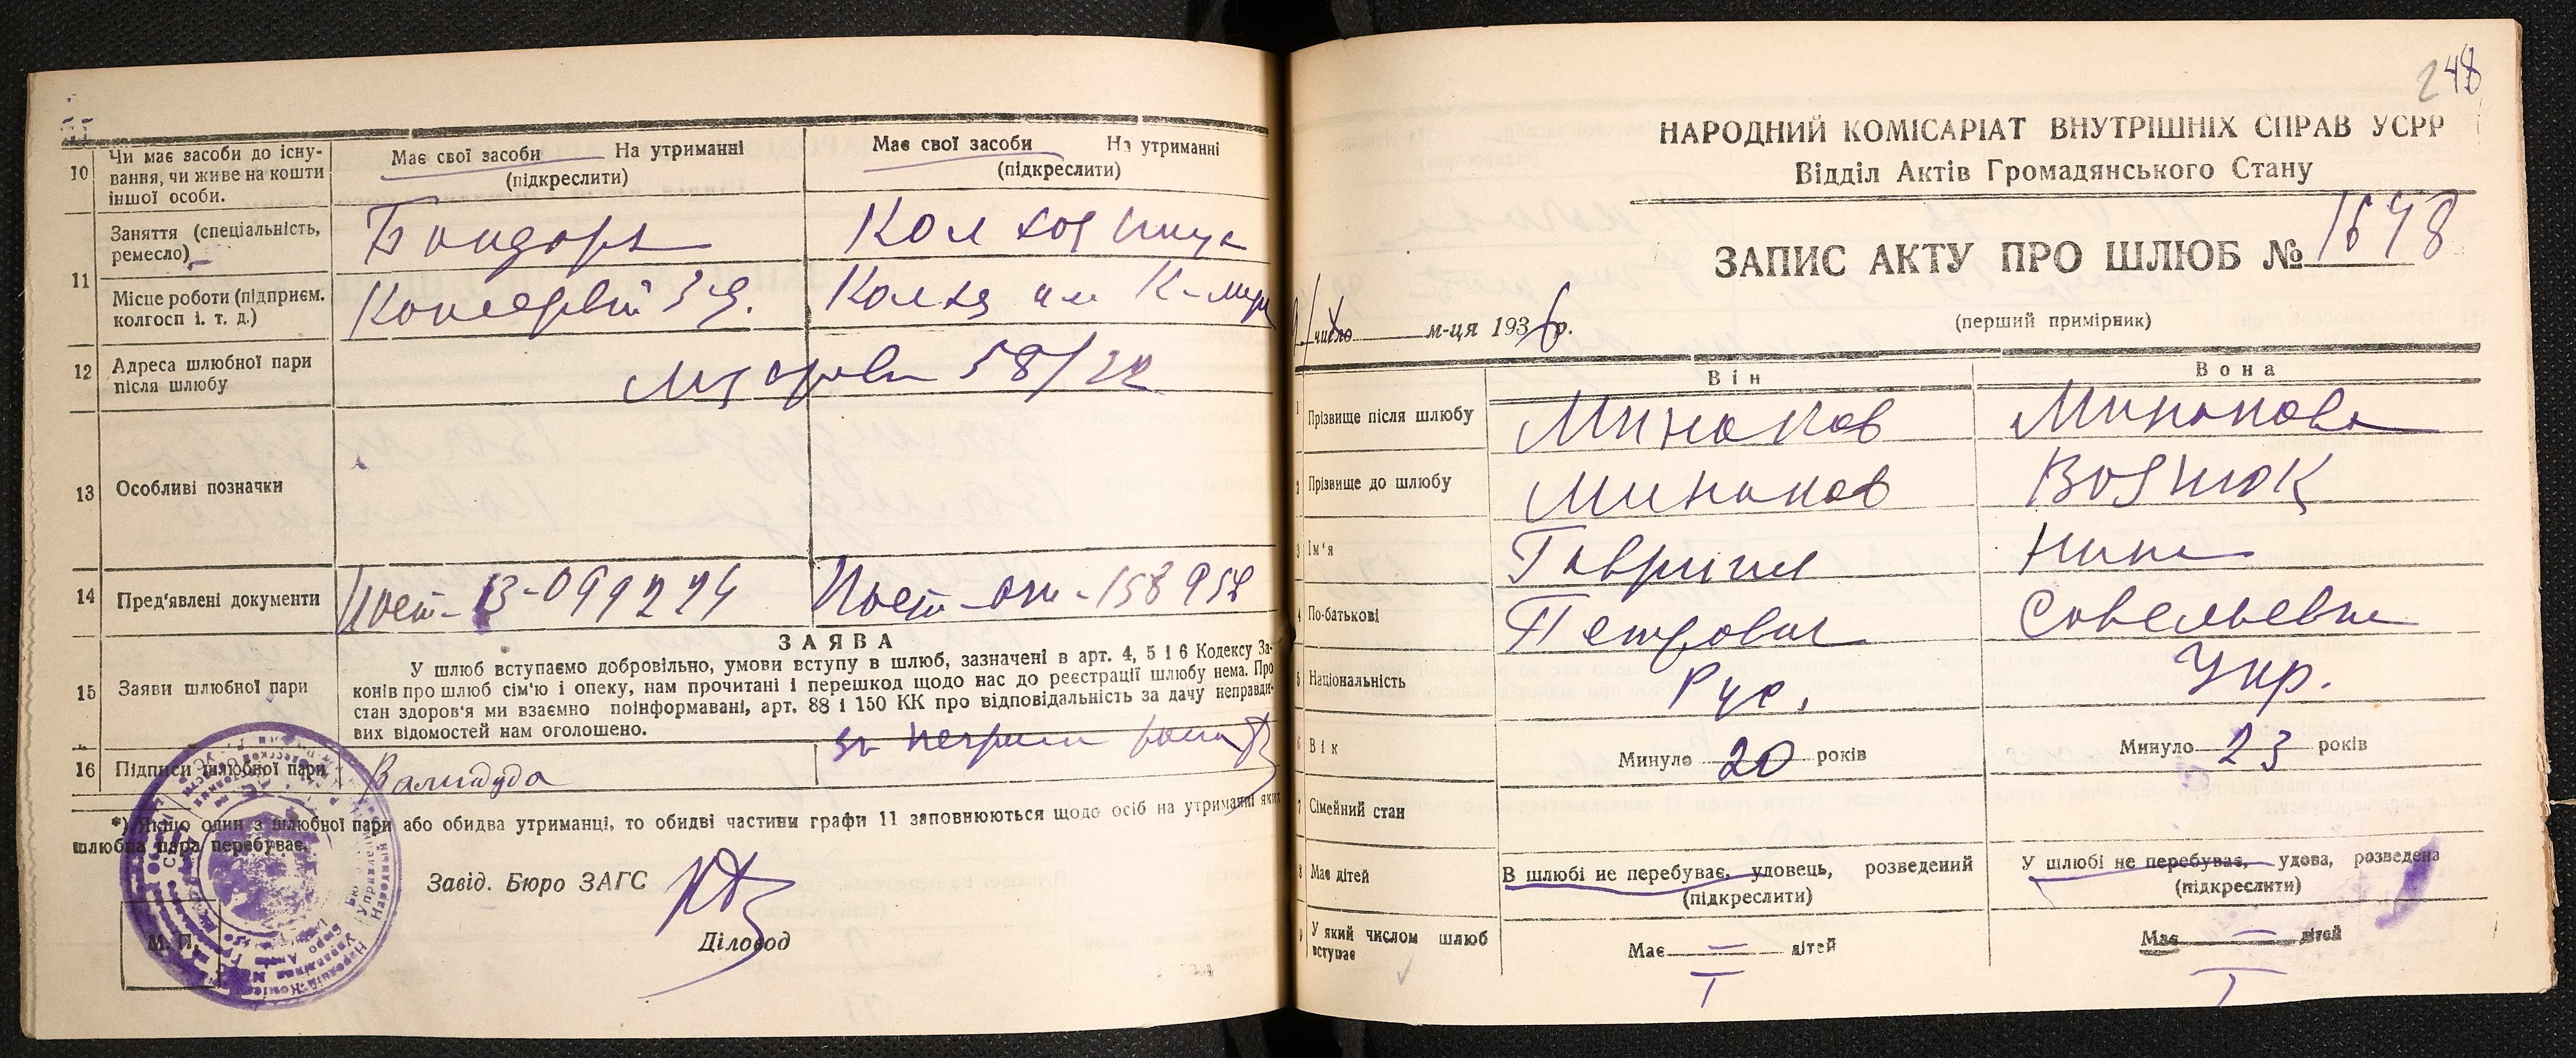 10
Чи має засоби до існу-
вання, чи живе на кошти
іншої особи.
Має свої засоби На утриманні
(підкреслити)
Має свої засоби На утриманні
(підкреслити)
11
Заняття (спеціальність,
ремесло)
Бондарь
Колхозница
Місце роботи (підприєм.
колгосп і. т. д.)
12
Адреса шлюбної пари
після шлюбу
58/22
13
Особливі позначки
14
Пред'явлені документи
15
Заяви шлюбної пари
ЗАЯВА
У шлюб вступаємо добровільно, умови вступу в шлюб, зазначені в арт. 4, 5 і 6 Кодексу За-
конів про шлюб сім'ю і опеку, нам прочитані і перешкод щодо нас до реєстрації шлюбу нема. Про
стан здоров'я ми взаємно поінформавані, арт. 88 і 150 КК про відповідальність за дачу неправди-
вих відомостей нам оголошено.
16
Підписи шлюбної пари
*) Якщо один з шлюбної пари або обидва утриманці, то обидві частини графи 11 заповнюються щодо осіб на утриманні яких
шлюбна пара перебуває.
Завід. Бюро ЗАГС
Діловод
М. П.
248
НАРОДНИЙ КОМІСАРІАТ ВНУТРІШНІХ СПРАВ УСРР
Відділ Актів Громадянського Стану
ЗАПИС АКТУ ПРО ШЛЮБ № 1648
число м-ця 1936 р.
(перший примірник)
Він
Вона
1 Прізвище після шлюбу
Минаков
Минакова
2 Прізвище до шлюбу
Минаков
Вознюк
3 Ім'я
Гавриил
Нина
4 По-батькові
Петрович
Савельевна
5 Національність
Рус.
Укр.
6 Вік
Минуло 20 років
Минуло 23 років
7 Сімейний стан
8 Має дітей
В шлюбі не перебуває, удовець, розведений
(підкреслити)
У шлюбі не перебуває, удова, розведена
(підкреслити)
9 У який числом шлюб
вступає
Має — дітей
Має — дітей
I
I